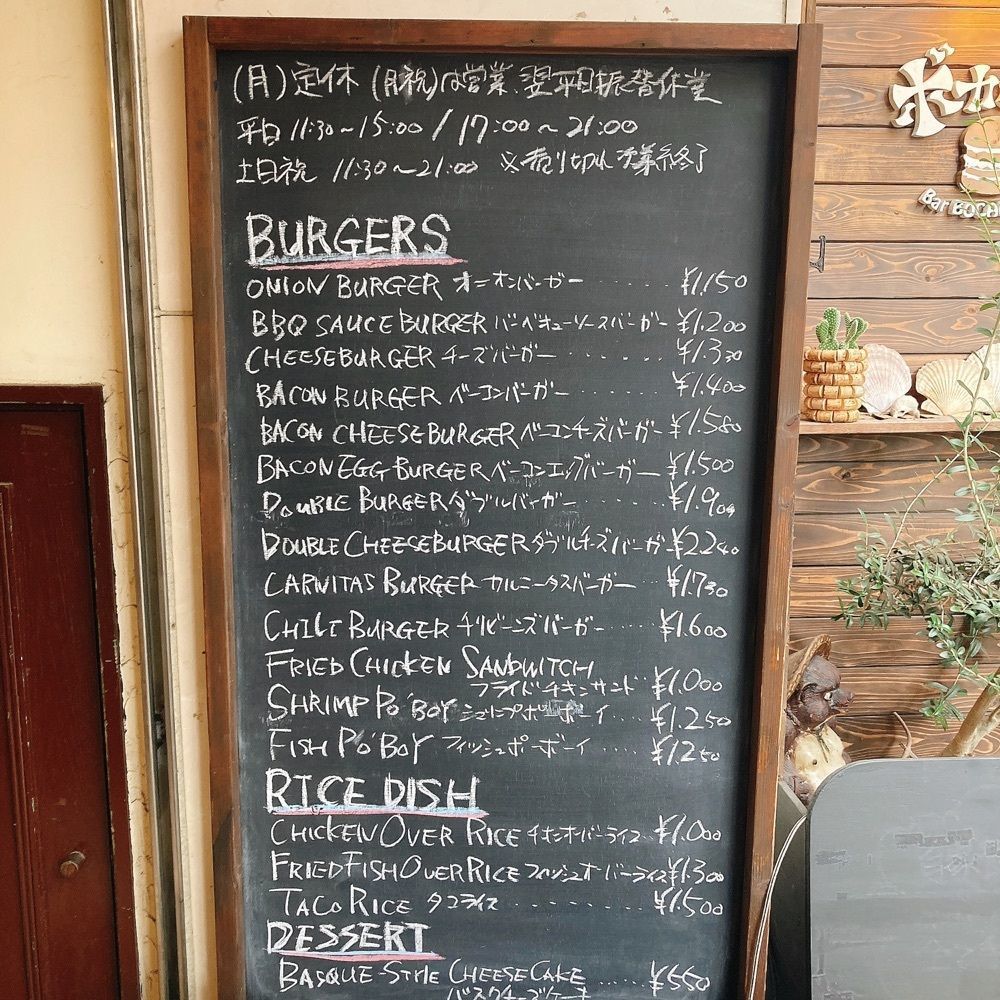 (月)定休 (月祝)は営業、翌平日振替休業
平日 11:30~15:00 / 17:00~21:00
土日祝 11:30~21:00 ※売り切れ次第終了
BURGERS
ONION BURGER オニオンバーガー ¥1,150
BBQ SAUCE BURGER バーベキューソースバーガー ¥1.200
CHEESEBURGER チーズバーガー ······· ¥1.330
BACON BURGER ベーコンバーガー ¥1.400
BACON CHEESEBURGER ベーコンチーズバーガー ¥1.580
BACON EGG BURGER ベーコンエッグバーガー ¥1.500
DOUBLE BURGER ダブルバーガー ······ ¥1.900
DOUBLE CHEESEBURGER ダブルチーズバーガー ¥2240
CARNITAS BURGER カルニータスバーガー ·· ¥1.730
CHILI BURGER チリビーンズバーガー ···· ¥1.600
FRIED CHICKEN SANDWITCH
フライドチキンサンド ·· ¥1.000
SHRIMP PO'BOY シュリンプポーボーイ ···· ¥1.250
FISH PO'BOY フィッシュポーボーイ ···· ¥1.250
RICE DISH
CHICKEN OVER RICE チキンオーバーライス ·· ¥1.000
FRIED FISH OVER RICE フィッシュオーバーライス ¥1.300
TACO RICE タコライス ········ ¥1.500
DESSERT
BASQUE-STYLE CHEESECAKE ···· ¥550
バスクチーズケーキ
ボカ
Bar BOCA